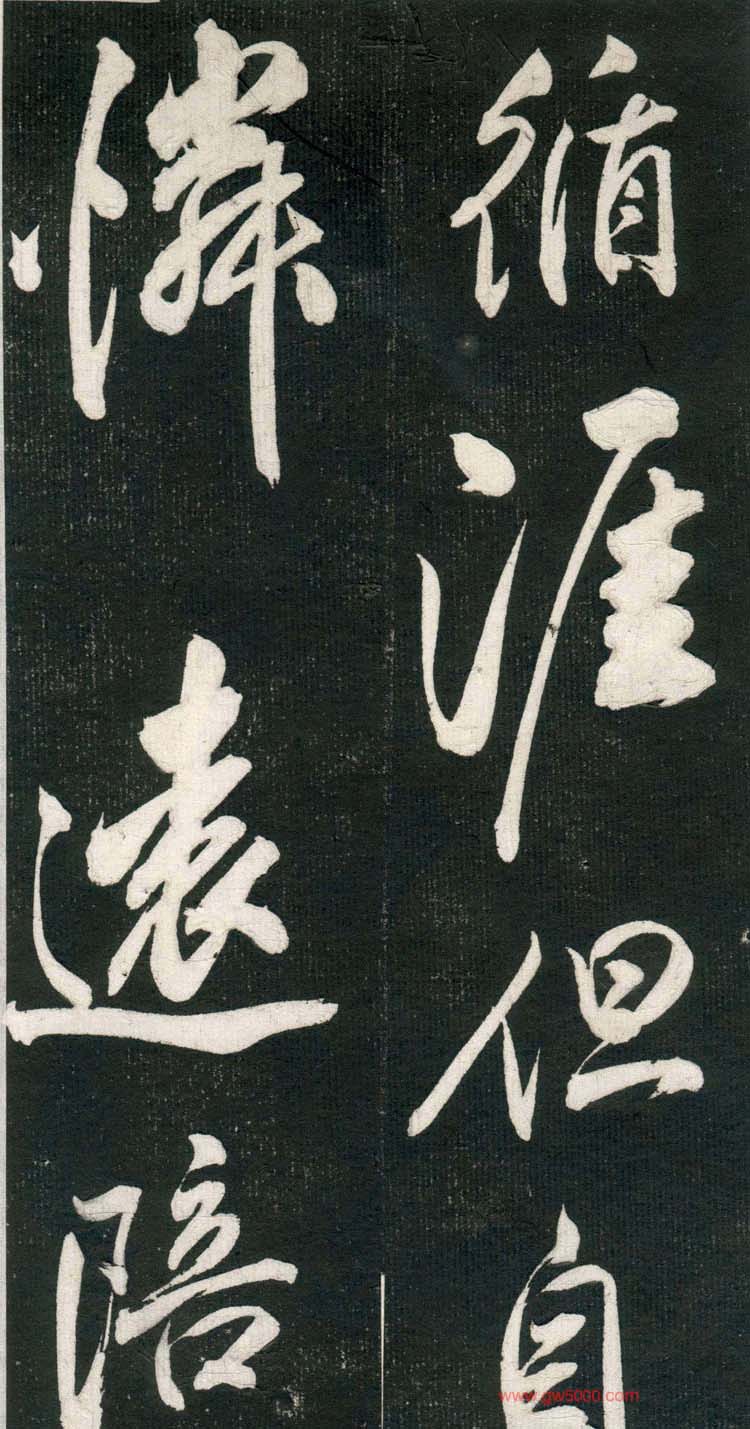 循涯但自
憐遠陪
www.gw5000.com